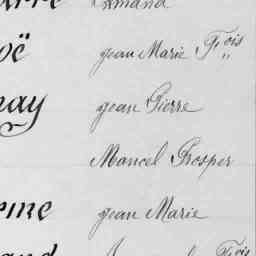 Armand
oë jean Marie F.ois
nay jean Pierre
Mancel Prosper
eme jean Marie
and F.ois